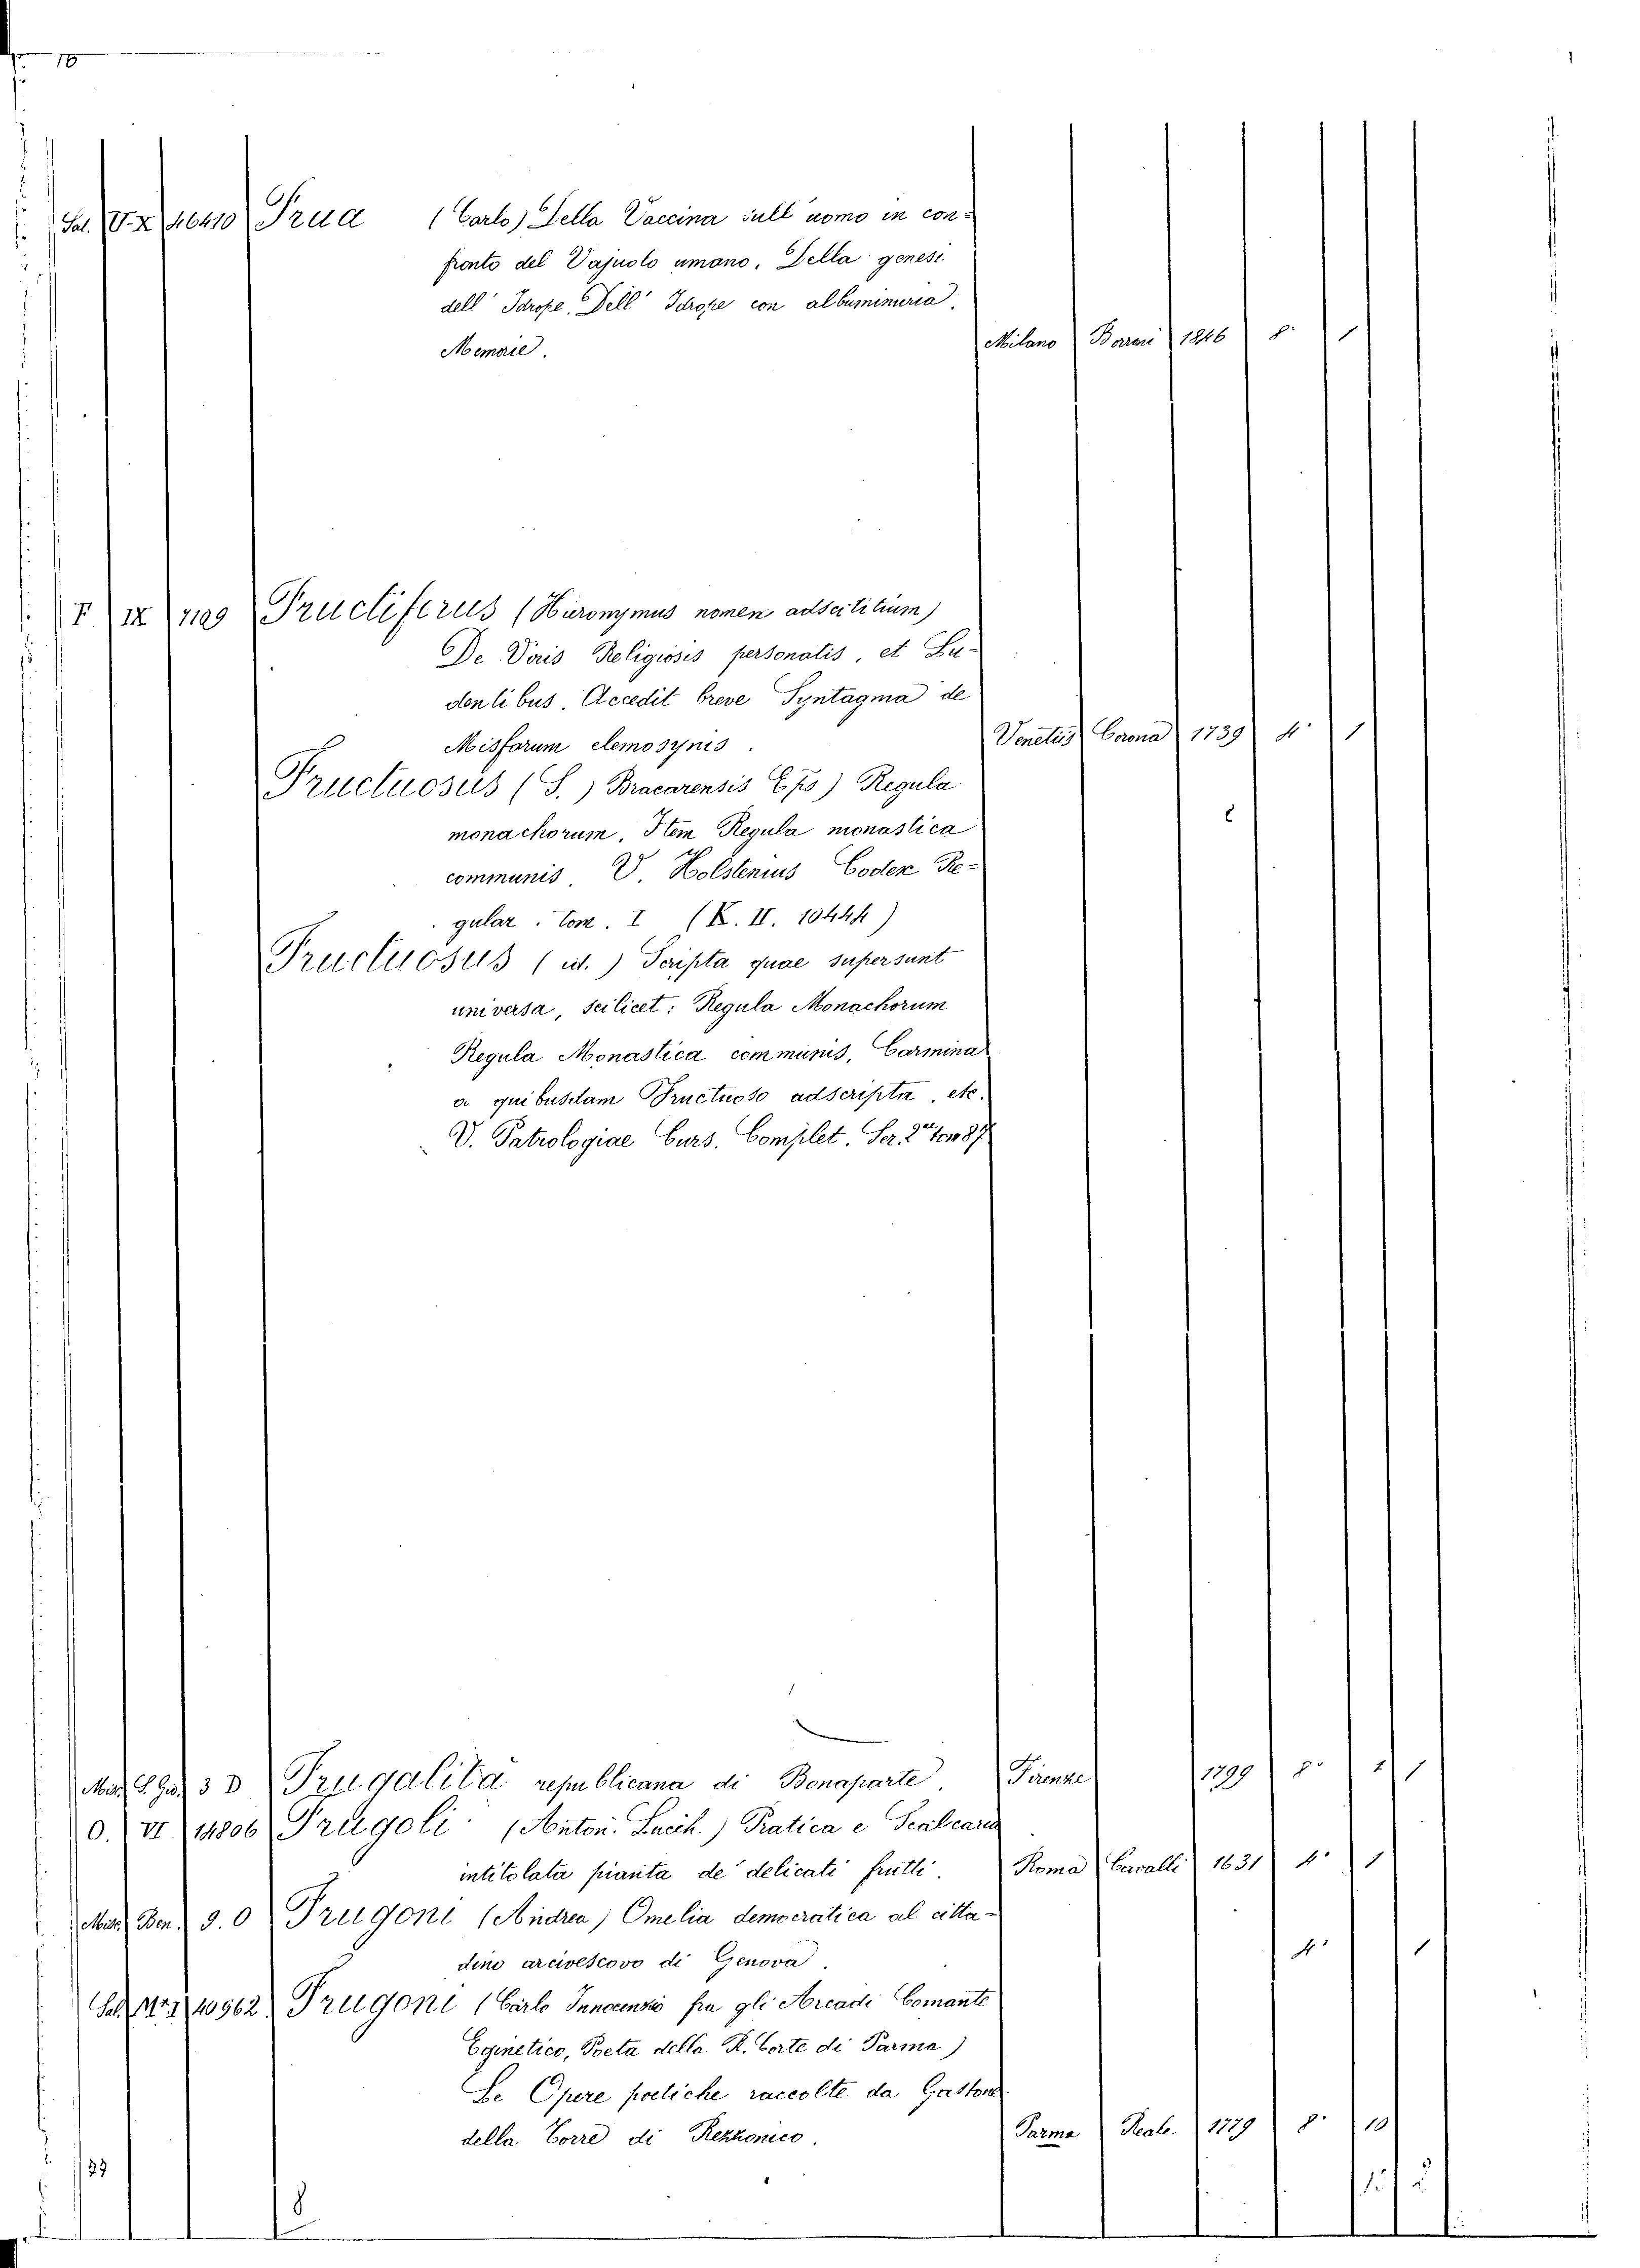 76
Sal. V. X 46410 Frua (Carlo) Della Vaccina sull' uomo in con=
fronto del Vajuolo umano. Della genesi
dell' Idrope. Dell' Idrope con albuminuria.
Memorie. Milano 1846 8° 1
F IX 7199 Fructiferus (Hieronymus nomen adscititium)
De Viris Religiosis personatis, et Lu-
dentibus. Accedit breve Syntagma de
Missarum elemosynis. Venetiis Corona 1739 4° 1
Fructuosus (S.) Bracarensis Eps) Regula
monachorum. Item Regula monastica
communis. V. Holstenius Codex Re=
gular. Tom. I (K. II. 10444)
Fructuosus (id.) Scripta quae supersunt
universa, scilicet: Regula Monachorum
Regula Monastica communis, Carmina
a quibusdam Fructuoso adscripta. etc.
V. Patrologiae Curs. Complet. Ser. 2a tom 87
3 D Frugalità republicana di Bonaparte. Firenze 1799 8° 1
O. VI 14806 Frugoli (Anton. Lucch.) Pratica e Scalcaria
intitolata pianta de' delicati frutti. Roma Cavalli 1631 4° 1
Misc. Ben. 9. 0 Frugoni (Andrea) Omelia democratica al citta-
dino arcivescovo di Genova. 4° 1
40962 Frugoni (Carlo Innocenzio fra gli Arcadi Comante
Eginetico, Poeta della R. Corte di Parma)
Le Opere poetiche raccolte da Gastone
della Torre di Rezzonico. Parma Reale 1779 8° 10
8